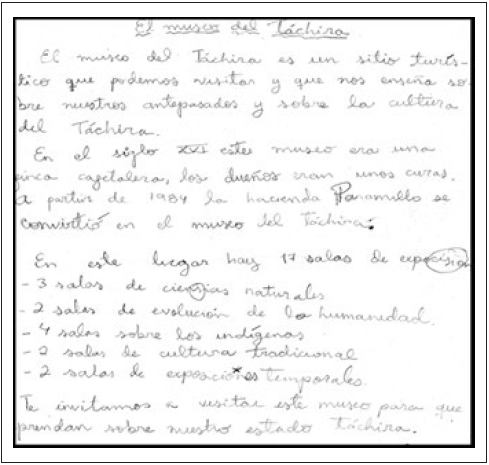 El museo del Táchira
El museo del Táchira es un sitio turís-
tico que podemos visitar y que nos enseña so-
bre nuestros antepasados y sobre la cultura
del Táchira.
En el siglo XVI este museo era una
finca cafetalera, los dueños eran unos curas.
a partir de 1984 la hacienda Paramillo se
convirtió en el museo del Táchira.
En este lugar hay 17 salas de exposición
- 3 salas de ciencias naturales
- 2 salas de evolución de la humanidad.
- 4 salas sobre los indígenas
- 2 salas de cultura tradicional
- 2 salas de exposiciones temporales.
Te invitamos a visitar este museo para que
prendan sobre nuestro estado táchira.